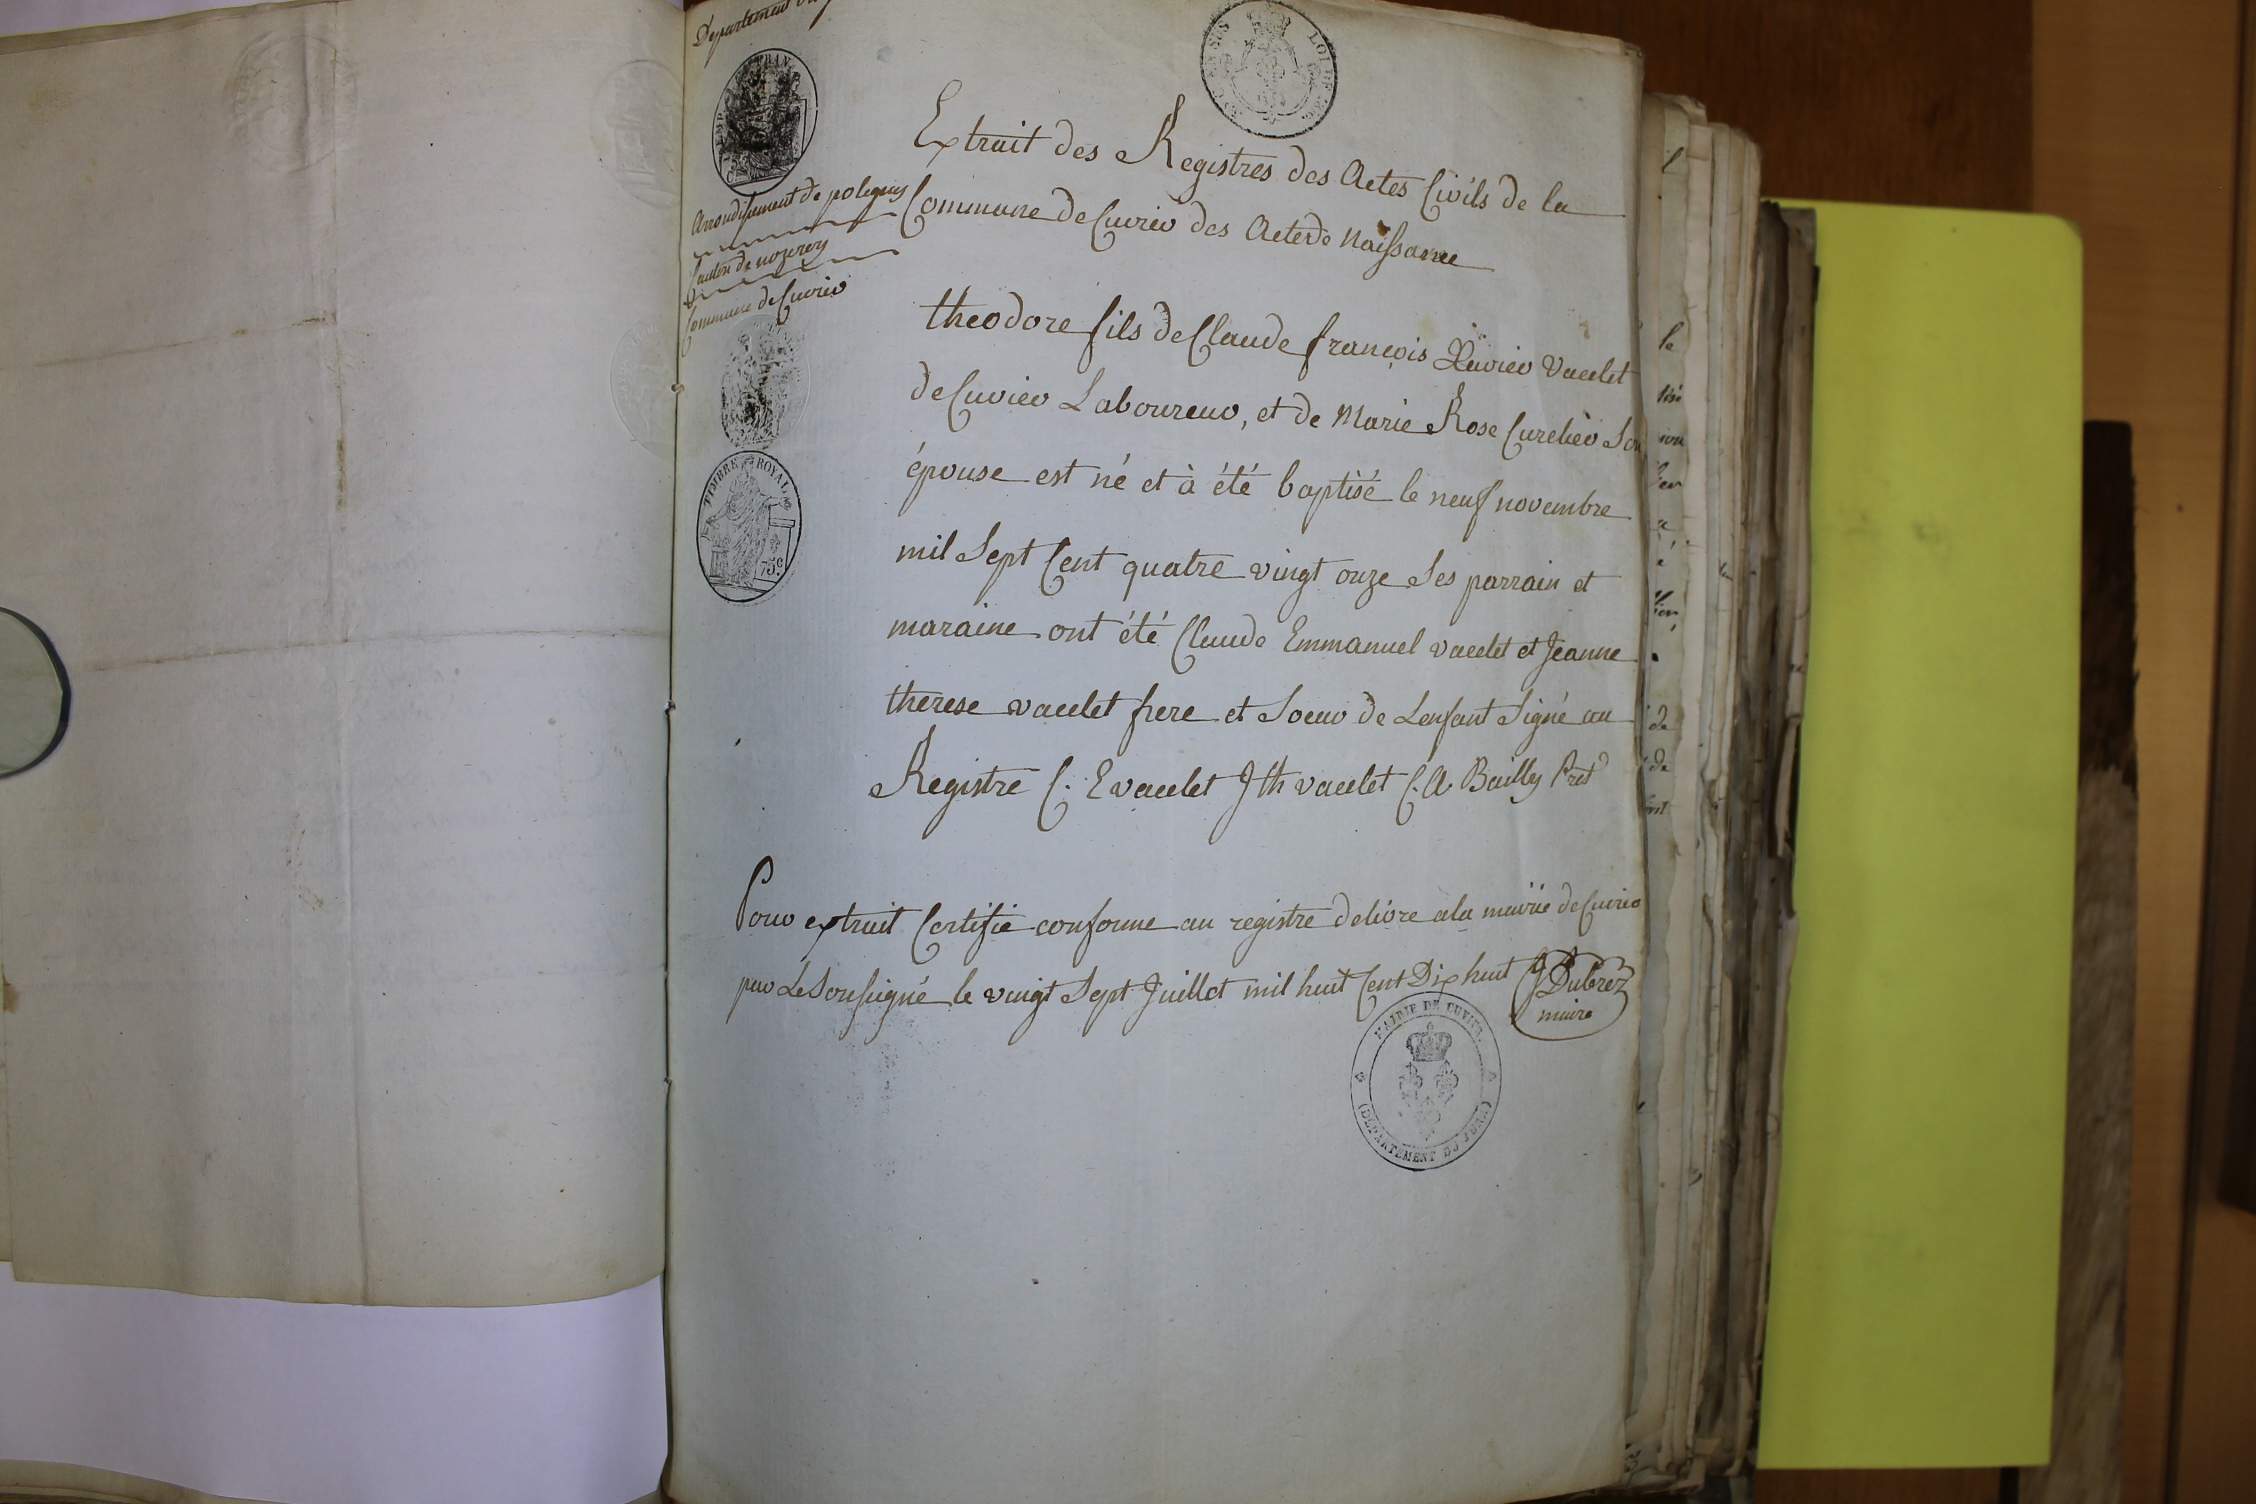 Departement du
Arrondissement de poligny
Canton de nozeroy
Commune de Cuvier
TIMBRE ROYAL
75c
Extrait des Registres des Actes Civils de la
Commune de Cuvier des Acte de Naissance
theodore fils de Claude françois Xavier Vacelet
de Cuvier Laboureur, et de Marie Rose Curelier Son
épouse est né et à été baptisé le neuf novembre
mil Sept Cent quatre vingt onze Ses parrain et
maraine ont été Claude Emmanuel vacelet et Jeanne
therese vacelet frere et Soeur de Lenfant Signé au
Registre C. E vacelet J th vacelet C. A. Bailly Pret
Pour extrait Certifié conforme au registre delivre a la mairie de Cuvier
par Le Soussigné le vingt Sept Juillet mil huit Cent Dix huit J Dubrez
maire
MAIRIE DE CUVIER
(DÉPARTEMENT DU JURA)